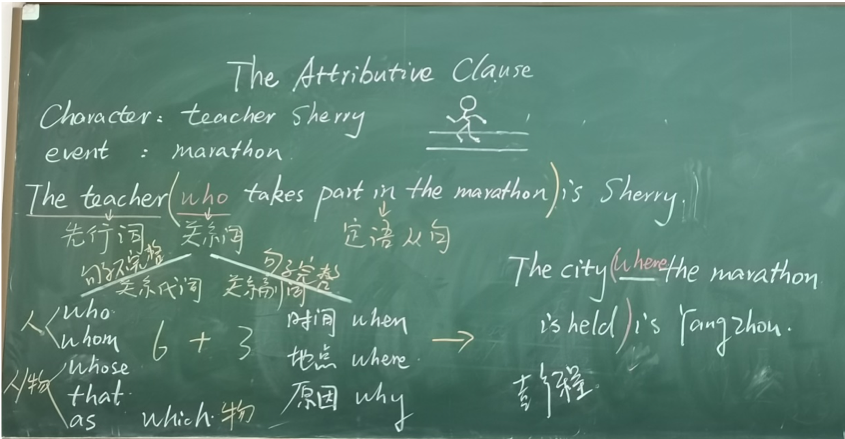 The Attributive Clause
Character: teacher Sherry
event : marathon
The teacher (who takes part in the marathon) is Sherry.
先行词 关系词 定语从句
句子不完整 句子完整
关系代词 关系副词
人 who
whom
人/物 whose
that
as
which 物
6 + 3
时间 when
地点 where
原因 why
→
The city (where the marathon
is held) is Yangzhou.